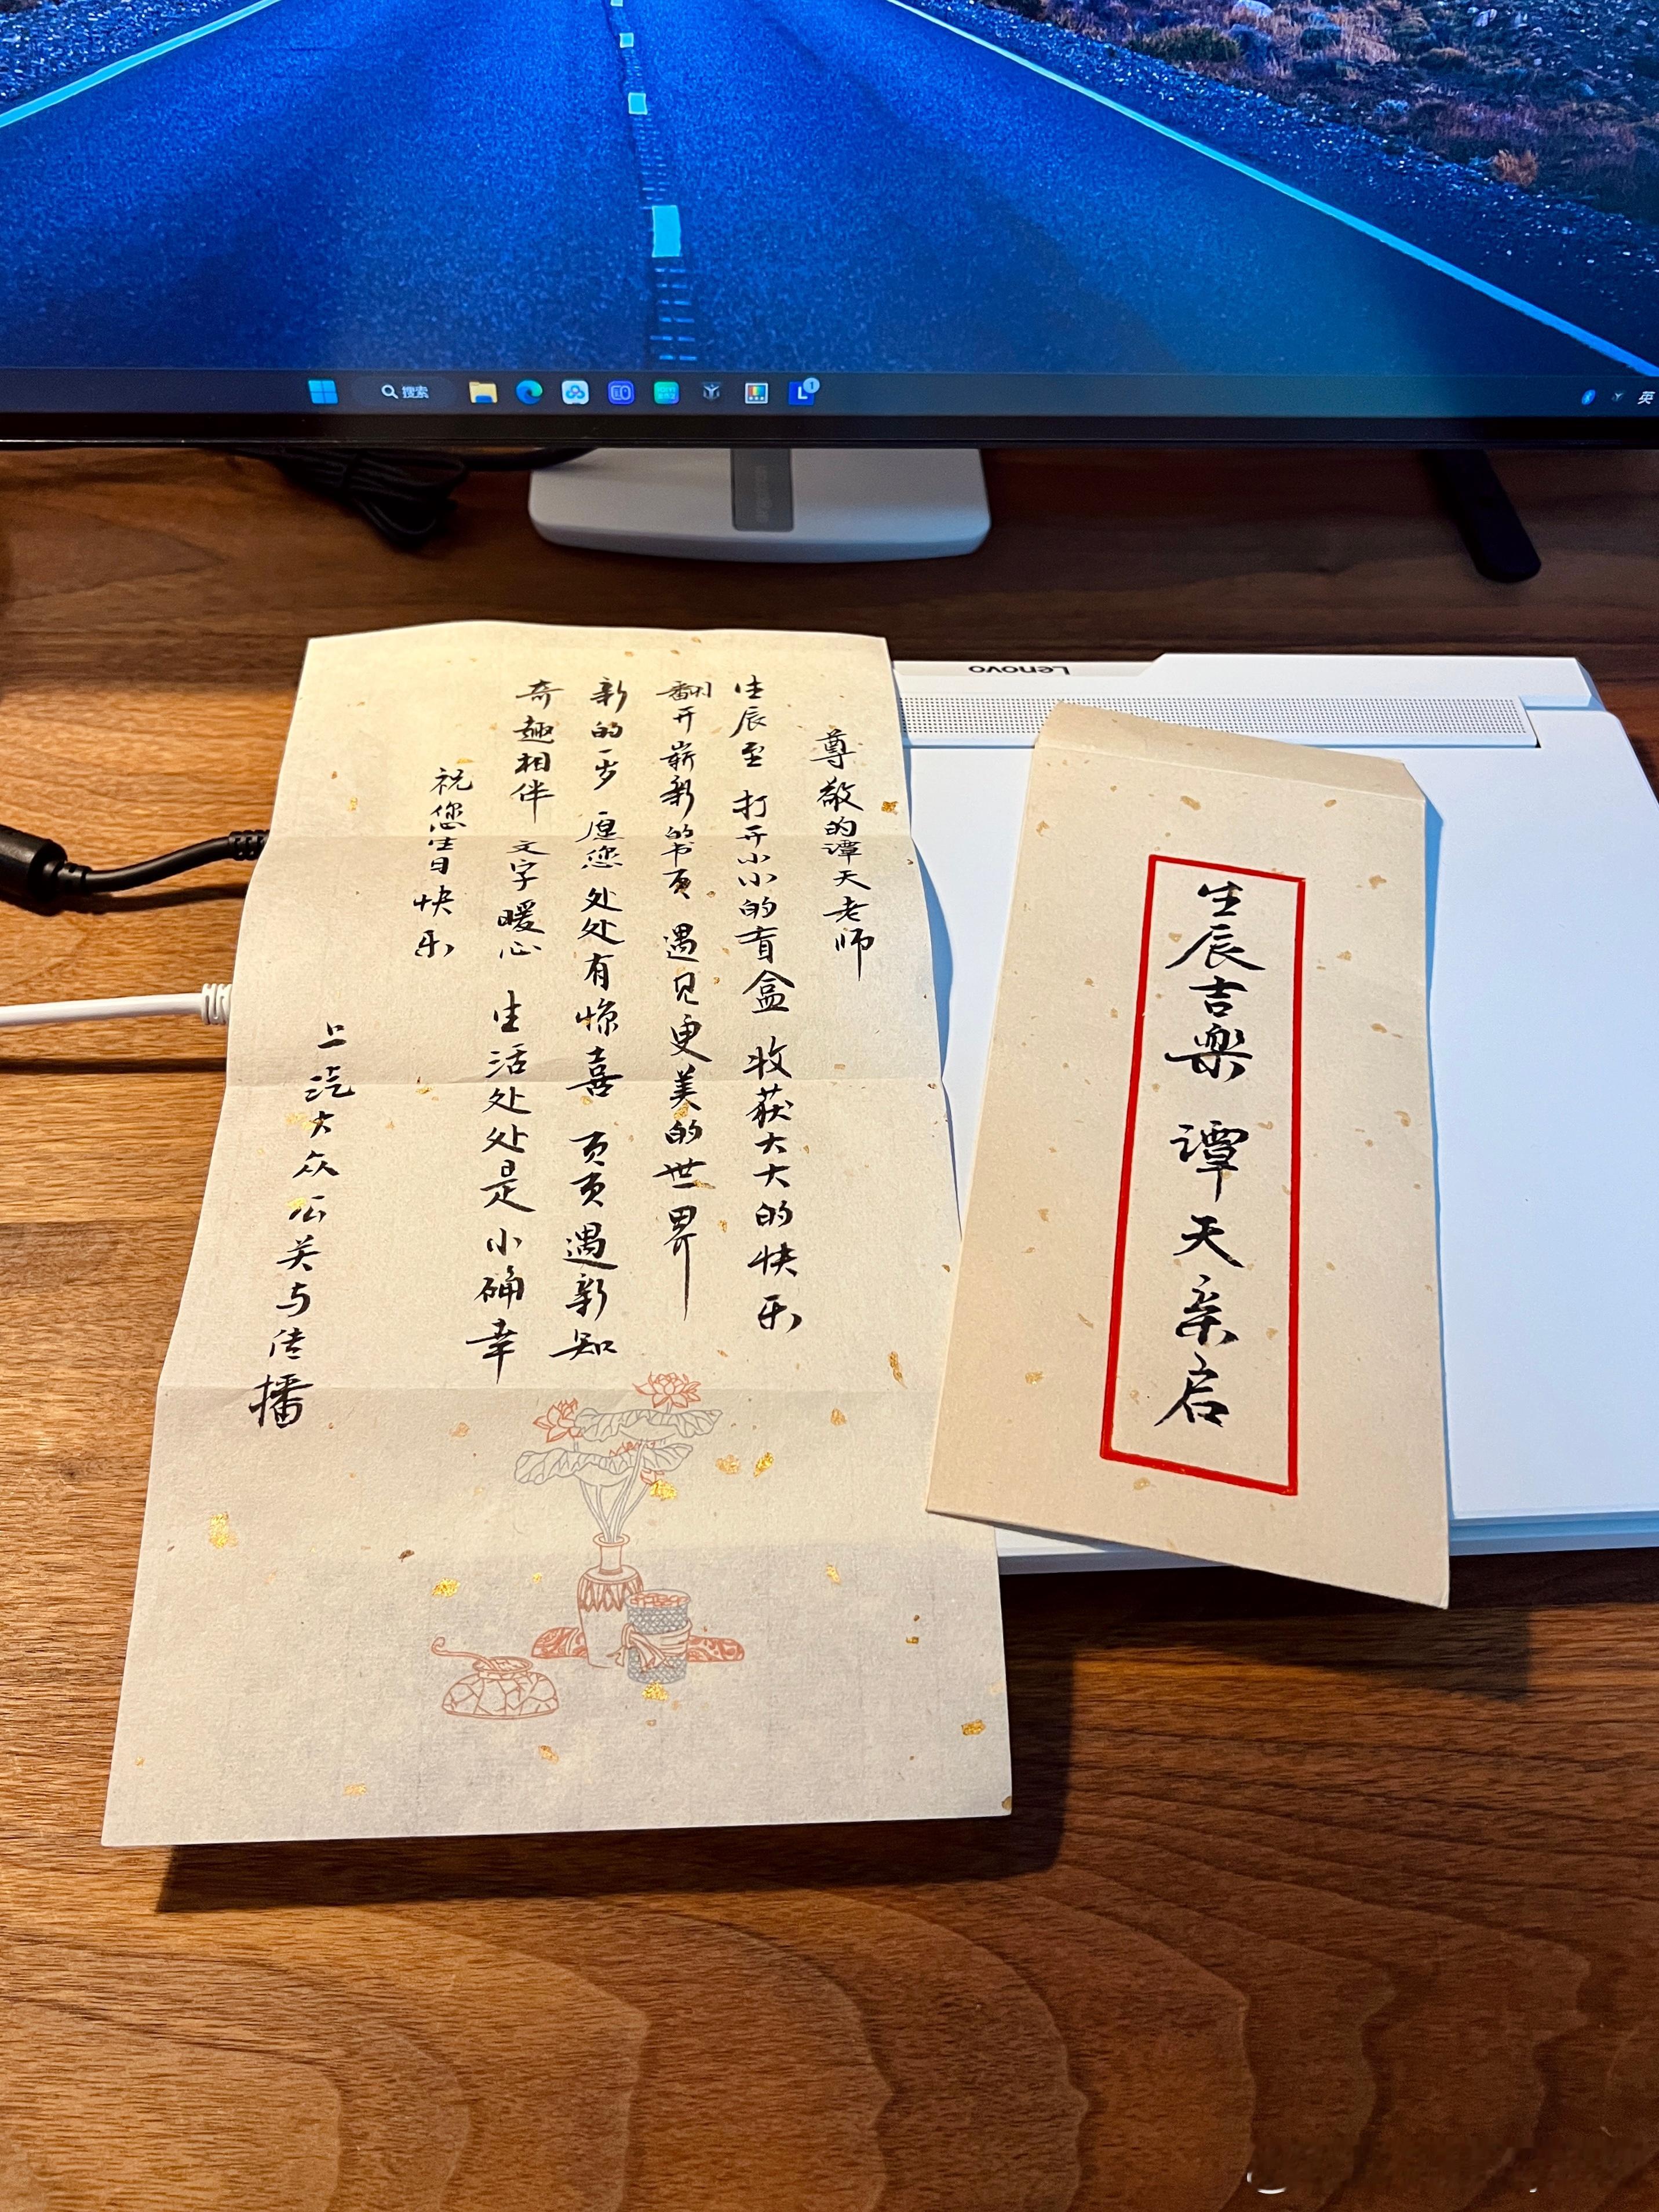 搜索
L
1
英
Lenovo
尊敬的谭天老师
生辰至 打开小小的盲盒 收获大大的快乐
翻开崭新的书页 遇见更美的世界
新的一岁 愿您处处有惊喜 页页遇新知
奇趣相伴 文字暖心 生活处处是小确幸
祝您生日快乐
上汽大众公关与传播
生辰吉樂 谭天亲启